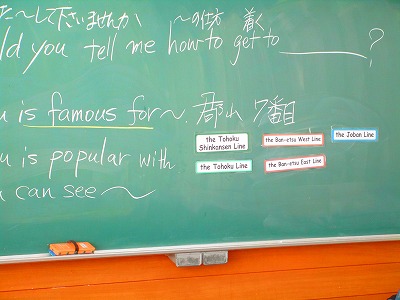 ～して下さいませんか ～の仕方 着く
ld you tell me how to get to ______?
u is famous for～. 郡山 7番目
the Tohoku Shinkansen Line the Ban-etsu West Line the Joban Line
u is popular with the Tohoku Line the Ban-etsu East Line
can see ～